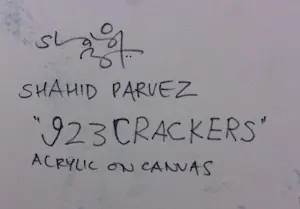 SHAHID PARVEZ
"923 CRACKERS"
ACRYLIC ON CANVAS